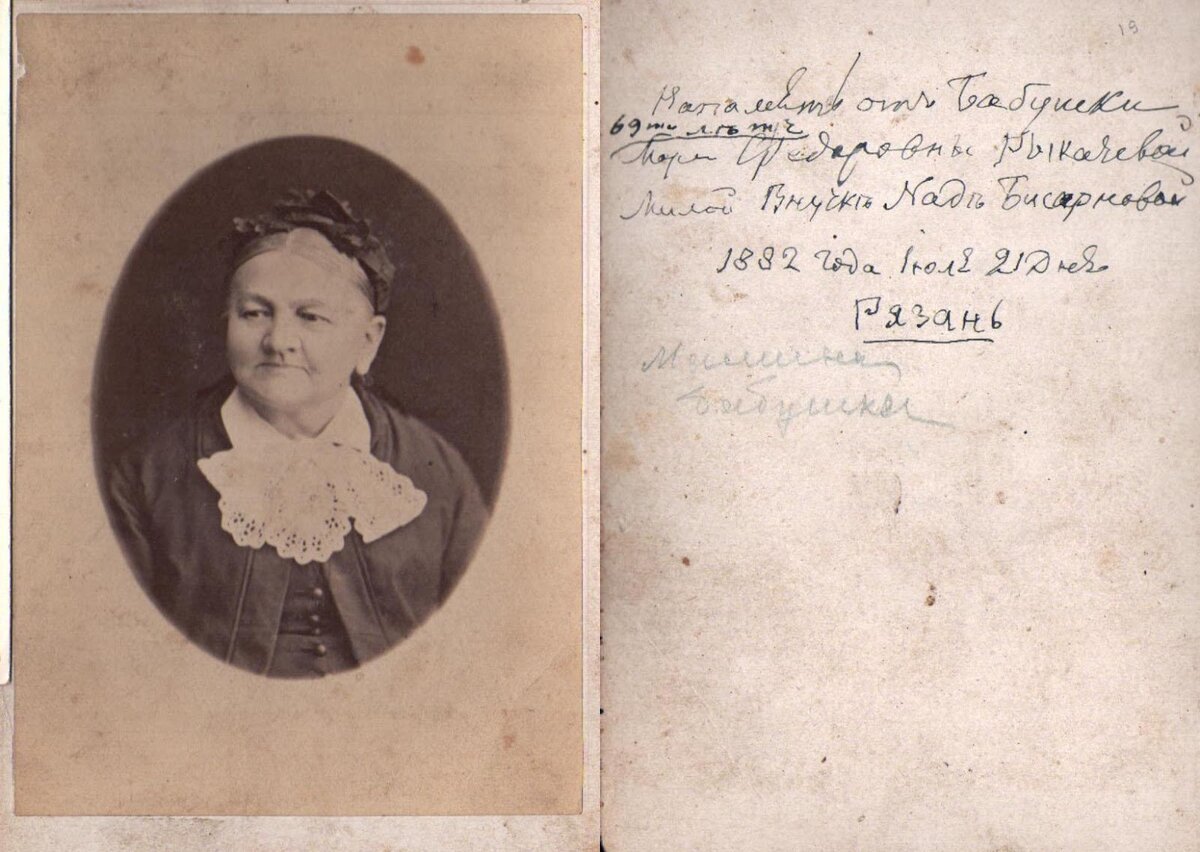 19
На память отъ Бабушки
69ти лѣтъ
Марьи Федоровны Рыкачевой
Милой Внучкѣ Надѣ Бисарновой
1882 года Июля 21 Дня
Рязань
Мамина
Бабушка